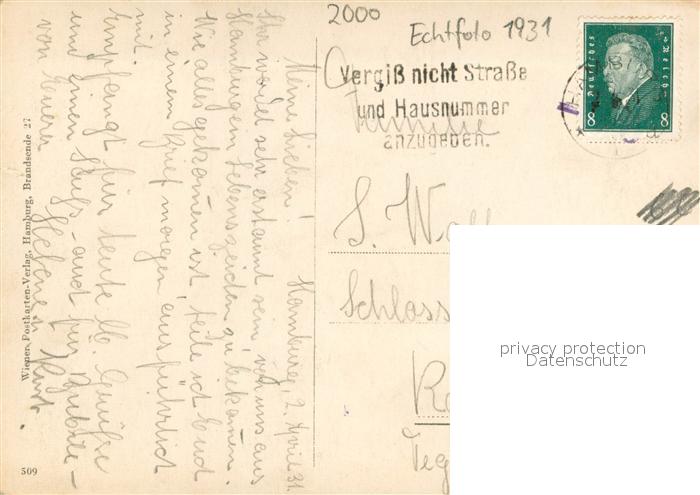 2000
Echtfoto 1931
Vergiß nicht Straße
und Hausnummer
anzugeben.
Deutsches Reich
8 8
Familie
S.
Schloss
Teg
privacy protection
Datenschutz
Hamburg, 2. April 31.
Meine Lieben!
Ihr werdet sehr erstaunt sein von uns aus
Hamburg ein Lebenszeichen zu bekommen.
Wie alles gekommen ist, teile ich Euch
in einem Brief morgen ausführlich
mit.
Empfangt für heute Grüsse
und einen auch für
von Euern
Helene u. Kurt.
Wiener Postkarten-Verlag, Hamburg, Brandsende 27
509